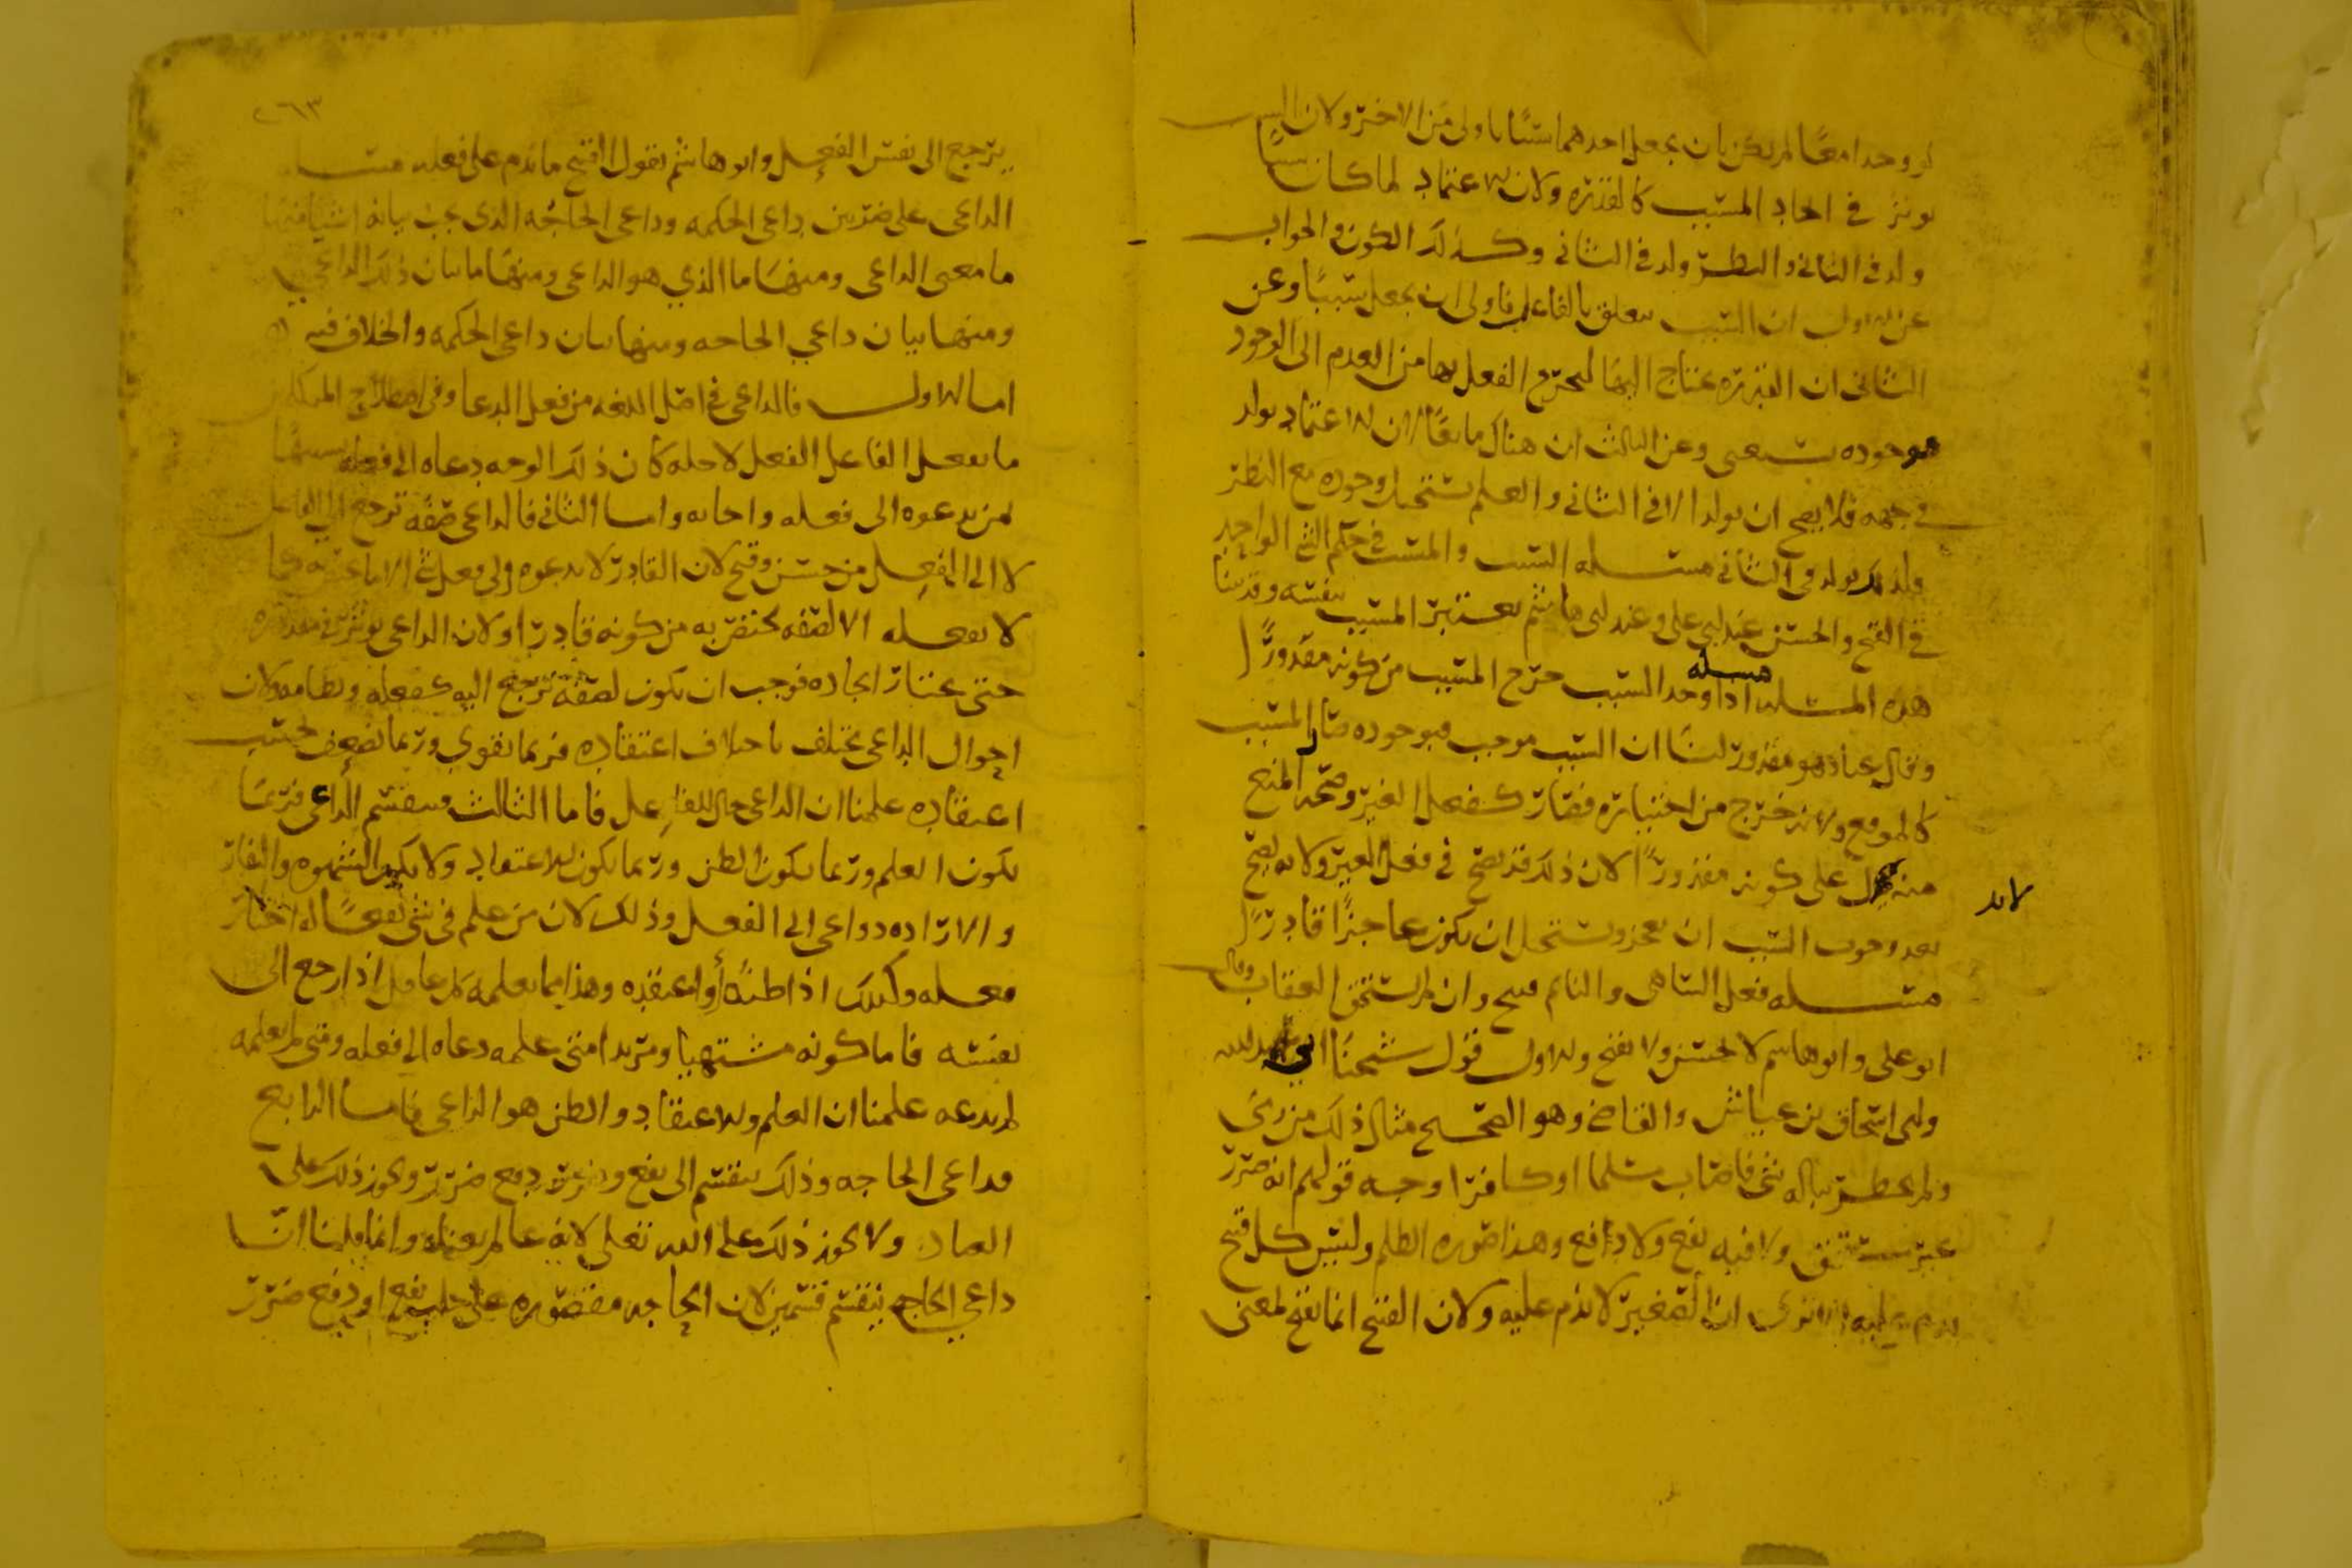 لو وحدا معًا لم يكن بان يجعل احدهما سببًا باولى من الاخر ولان السبب
يوثر في ايجاد المسبب كالقدره ولان الاعتماد لما كان سببًا
ولد في الثاني والنظر ولد في الثاني وكذلك الكون والجواب
عن الاول ان السبب يتعلق بالفاعل فاولى ان يجعل سببًا وعن
الثاني ان القدره يحتاج اليها ليخرج الفعل بها من العدم الى الوجود
موجوده يستغنى وعن الثالث ان هناك مانعًا لان الاعتماد يولد
في جهه فلا يصح ان يولد الا في الثاني والعلم يستحيل وجوده مع النظر
ولذلك يولد في الثاني مسله السبب والمسبب في حكم الشي الواحد
في القبح والحسن عند ابي على وعند ابى هاشم يعتبر المسبب بنفسه وقد بينا
هذه المسله مسله اذا وجد السبب خرج المسبب من كونه مقدورًا
وقال عباد هو مقدور لنا ان السبب موجب فبوجوده صار المسبب
كالموقع ولانه خرج من اختياره فصار كفعل الغير وصحه المنع
منه لا يدل على كونه مقدورًا لان ذلك قد يصح في فعل الغير ولانه يصح
بعد وجود السبب ان يعجز ويستحيل ان يكون عاجزًا قادرًا
مسله فعل الساهى والنايم قبيح وان لم يستحق العقاب وقال
ابو على وابو هاشم لا يحسن ولا يقبح والاول قول شيخنا ابي عبد الله
وابى اسحاق بن عياش والقاضي وهو الصحيح مثال ذلك من رمى
ولم يخطر بباله شي فاصاب مسلما او كافرا وجه قولهم انه ضرر
غير مستحق ولا فيه نفع ولا دافع وهذا صوره الظلم وليس كل قبح
يذم عليه الا ترى ان الصغير لا يذم عليه ولان القبح انما يقبح لمعنى
لا يد
٢٦٣
يرجع الى نفس الفعل وابو هاشم يقول القبح ما يذم على فعله مسله
الداعي على ضربين داعي الحكمه وداعي الحاجه الذى يجب بيانه اشيا منها
ما معنى الداعى ومنها ما الذي هو الداعى ومنها ما بيان ذلك الداعي
ومنها بيان داعي الحاجه ومنها بيان داعي الحكمه والخلاف فيه
اما الاول فالداعى في اصل اللغه من فعل الدعا وفي اصطلاح المتكلمين
ما يفعل الفاعل الفعل لاجله كان ذلك الوجه دعاه الى فعله تشبيهًا
لمن يدعوه الى فعله واجابه واما الثاني فالداعي صفه ترجع الى الفاعل
لا الى الفعل من حسن وقبح لان القادر لا يدعوه الى فعل شي
لا يفعله الا لصفه يختص به من كونه قادرا ولان الداعى يوثر في مقدوره
حتى يختار ايجاده فوجب ان يكون لصفة ترجع اليه كفعله ونظامه ولان
احوال الداعى يختلف باختلاف اعتقاده فربما يقوي وربما يضعف بحسب
اعتقاده علمنا ان الداعى حال للفاعل فاما الثالث فينقسم الداعى فربما
يكون العلم وربما يكون الظن وربما يكون الاعتقاد ولا يكون الشهوه والنفار
والاراده دواعى الى الفعل وذلك لان من علم في شي نفعًا له اختار
فعله وكذلك اذا ظنه او اعتقده وهذا مما يعلمه كل عاقل اذا رجع الى
نفسه فاما كونه مشتهيا ومريدا متى علمه دعاه الى فعله ومتى لم يعلمه
لم يدعه علمنا ان العلم والاعتقاد والظن هو الداعى فاما الرابع
فداعى الحاجه وذلك ينقسم الى نفع والى دفع ضرر ويجوز ذلك على
العباد ولا يجوز ذلك على الله تعلى لانه عالم بغناه وانما قلنا ان
داعي الحاجه ينقسم قسمين لان الحاجه مقصوره على جلب نفع او دفع ضرر